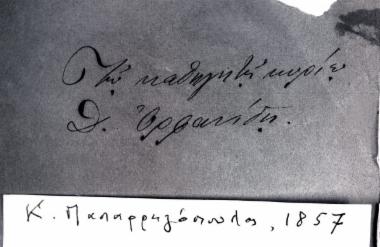 Τῷ καθηγητῇ κυρίῳ
Δ. Ὀρφανίδῃ.
Κ. Παπαρρηγόπουλος, 1857